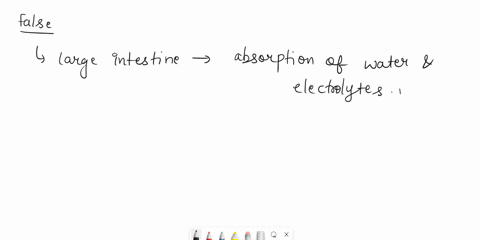 False
↳ large intestine → absorption of water &
electrolytes..